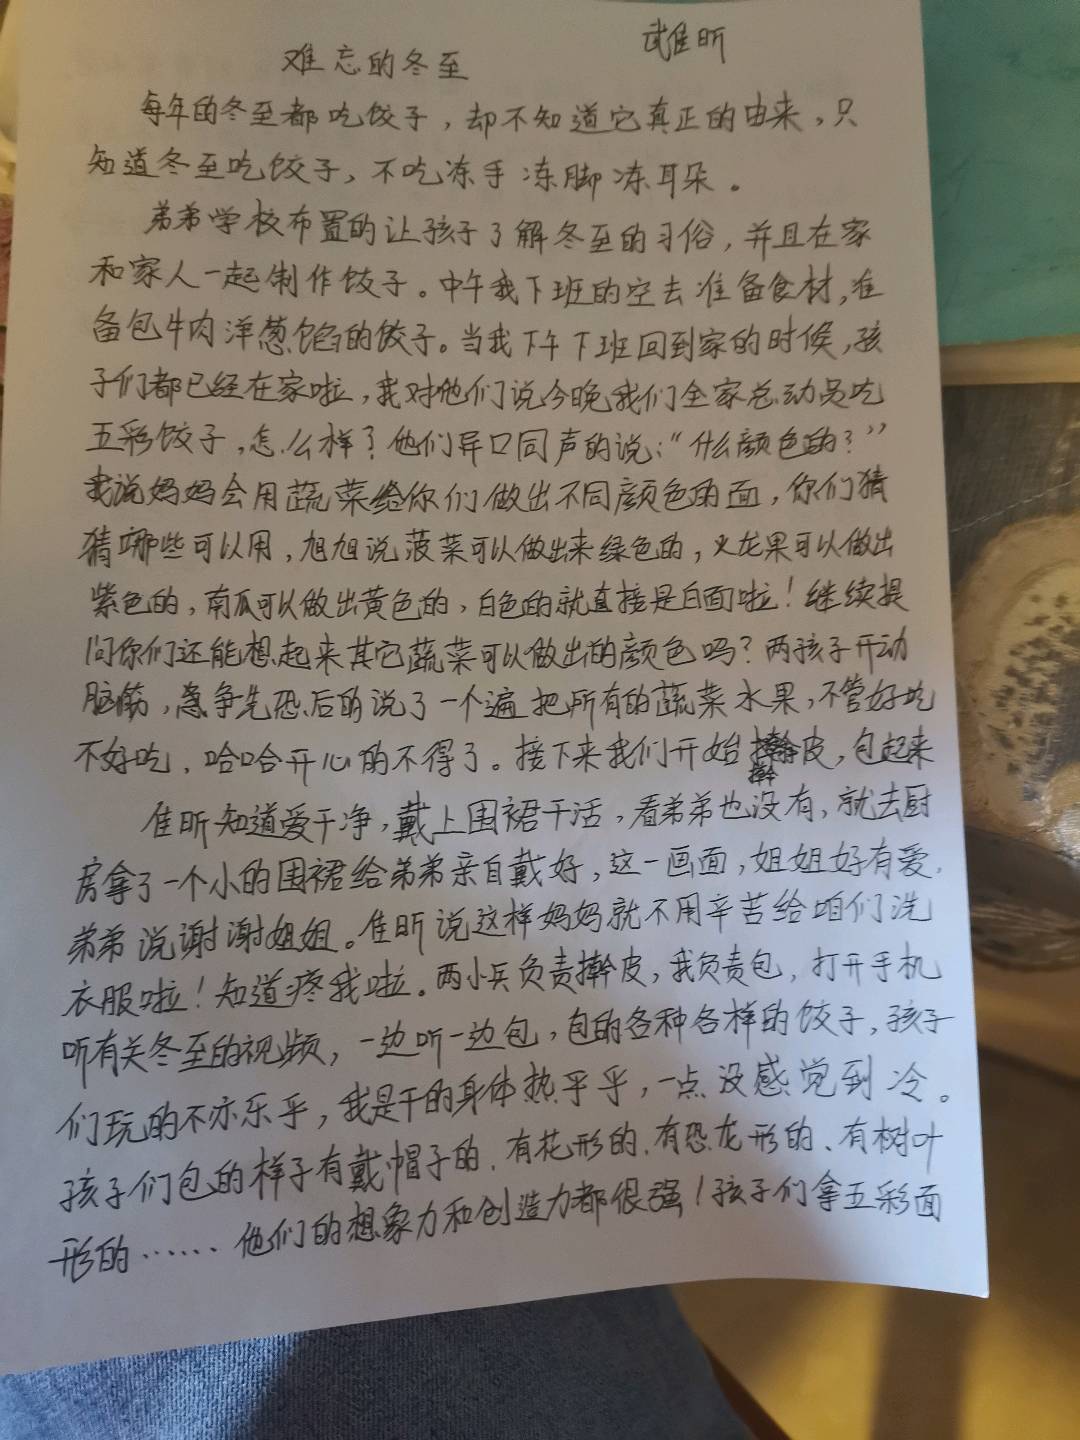 武佳昕
难忘的冬至
每年的冬至都吃饺子，却不知道它真正的由来，只
知道冬至吃饺子，不吃冻手冻脚冻耳朵。
弟弟学校布置的让孩子了解冬至的习俗，并且在家
和家人一起制作饺子。中午我下班的空去准备食材，准
备包牛肉洋葱馅的饺子。当我下午下班回到家的时候，孩
子们都已经在家啦，我对他们说今晚我们全家总动员吃
五彩饺子，怎么样？他们异口同声的说：“什么颜色的？”
我说妈妈会用蔬菜给你们做出不同颜色的面，你们猜
猜哪些可以用，旭旭说菠菜可以做出来绿色的，火龙果可以做出
紫色的，南瓜可以做出黄色的，白色的就直接是白面啦！继续提
问你们还能想起来其它蔬菜可以做出的颜色吗？两孩子开动
脑筋，急争先恐后的说了一个遍把所有的蔬菜水果，不管好吃
不好吃，哈哈开心的不得了。接下来我们开始擀皮，包起来
佳昕知道爱干净，戴上围裙干活，看弟弟也没有，就去厨
房拿了一个小的围裙给弟弟亲自戴好，这一画面，姐姐好有爱，
弟弟说谢谢姐姐。佳昕说这样妈妈就不用辛苦给咱们洗
衣服啦！知道疼我啦。两小兵负责擀皮，我负责包，打开手机
听有关冬至的视频，一边听一边包，包的各种各样的饺子，孩子
们玩的不亦乐乎，我是干的身体热乎乎，一点没感觉到冷。
孩子们包的样子有戴帽子的、有花形的、有恐龙形的、有树叶
形的……他们的想象力和创造力都很强！孩子们拿五彩面